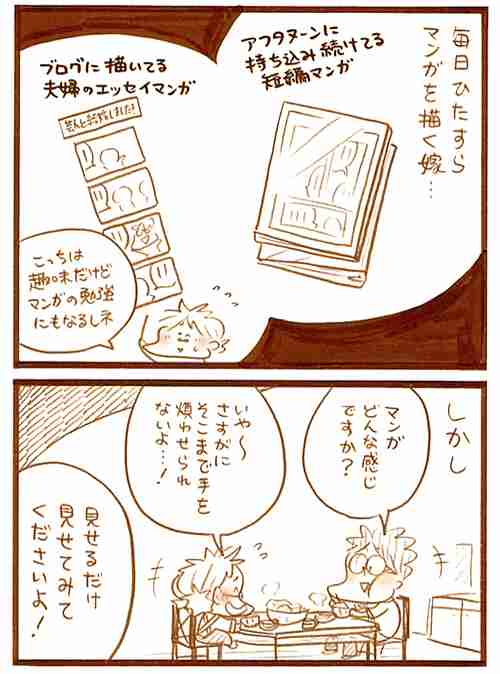 毎日ひたすら
マンガを描く嫁…
アフタヌーンに
持ち込み続けてる
短編マンガ
ブログに描いてる
夫婦のエッセイマンガ
芸人と結婚しました!
こっちは
趣味だけど
マンガの勉強
にもなるしネ
しかし
マンガ
どんな感じ
ですか?
いや〜
さすがに
そこまで手を
煩わせられ
ないよ…!
見せるだけ
見せてみて
くださいよ!